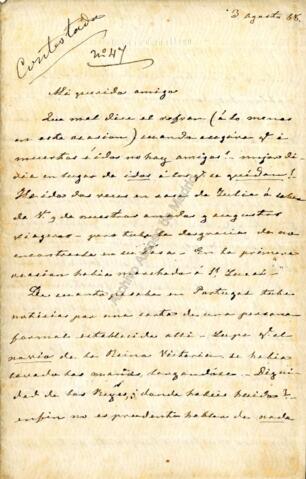 3 agosto 68.
Contestada
nº 47
Mi querido amigo
Que mal dice el refran (á lo menos
en esta ocasion) cuando asegura qe á
muertos é idos no hay amigos! mejor di-
ria en lugar de idos á los qe se quedan!
He ido dos veces en casa de Julia á saber
de V. y de nuestros amados y augustos
viageros - pero tube la desgracia de no
encontrarla en su casa. En la primera
ocasion habia marchado á Sn Lucar.
De cuanto pasaba en Portugal tube
noticias por una carta de una persona
formal establecida alli. Supe qe el
navio de la Reina Victoria se habia
lavado las manos, largandose. Digni-
dad de los Reyes, ¿donde habeis huido?
en fin no es prudente hablar de nada
Archivo
de Madrid